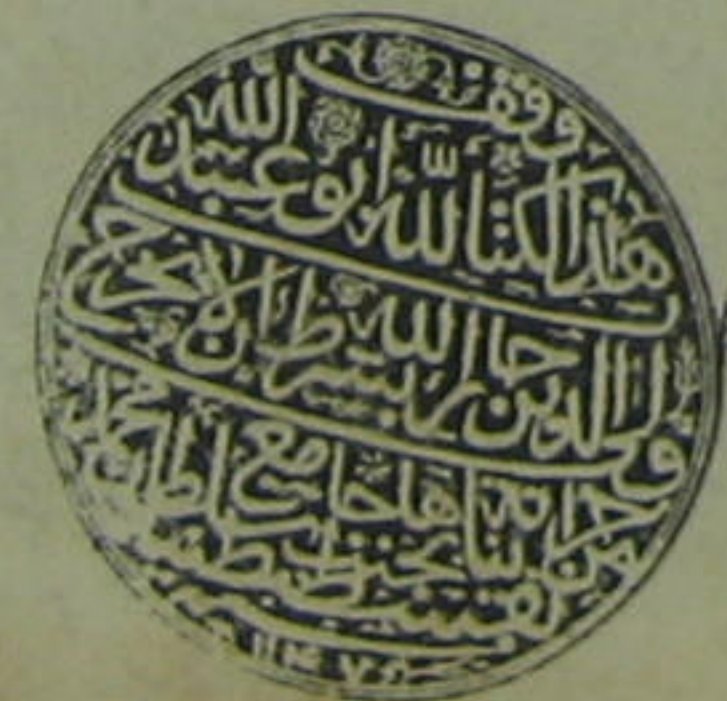 وقف
هذا الكتاب لله ابو عبد الله
ولي الدين جار الله بشرط ان لا يخرج
من خزانة بناها بجنب جامع سلطان محمد
بقسطنطينية